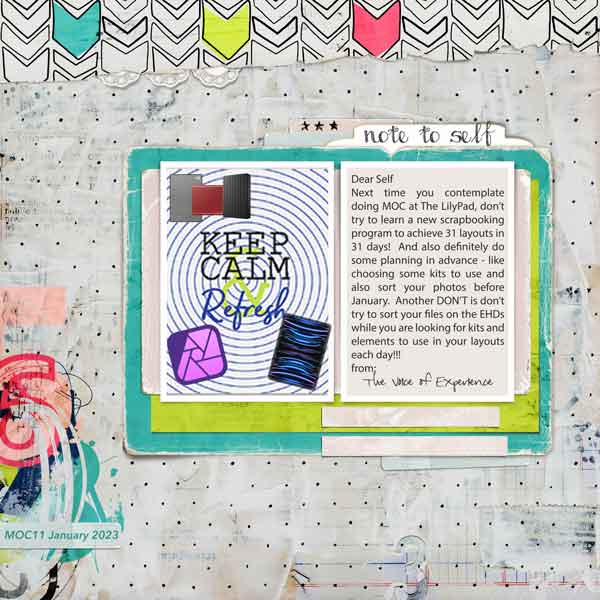 note to self
KEEP
CALM
&
Refresh
Dear Self
Next time you contemplate
doing MOC at The LilyPad, don't
try to learn a new scrapbooking
program to achieve 31 layouts in
31 days! And also definitely do
some planning in advance - like
choosing some kits to use and
also sort your photos before
January. Another DON'T is don't
try to sort your files on the EHDs
while you are looking for kits and
elements to use in your layouts
each day!!!
from;
The Voice of Experience
MOC11 January 2023